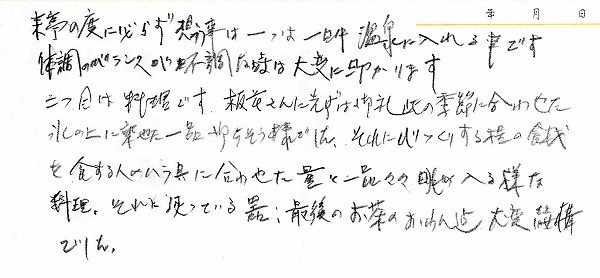 年 月 日
来亭の度に必らず想う事は一つは一日中温泉に入れる事です
体調のバランスが不調な時は大変に助かります
二つ目は料理です、板前さんに先ずは御礼 此の季節に合わせた
氷の上に乗せた一品 御ちそう様でした、それにびっくりする程の食材
を食する人の 具に合わせた量と一品々々眼が入る様な
料理、それに使っている器；最後のお茶のおわん迄 大変結構
でした。